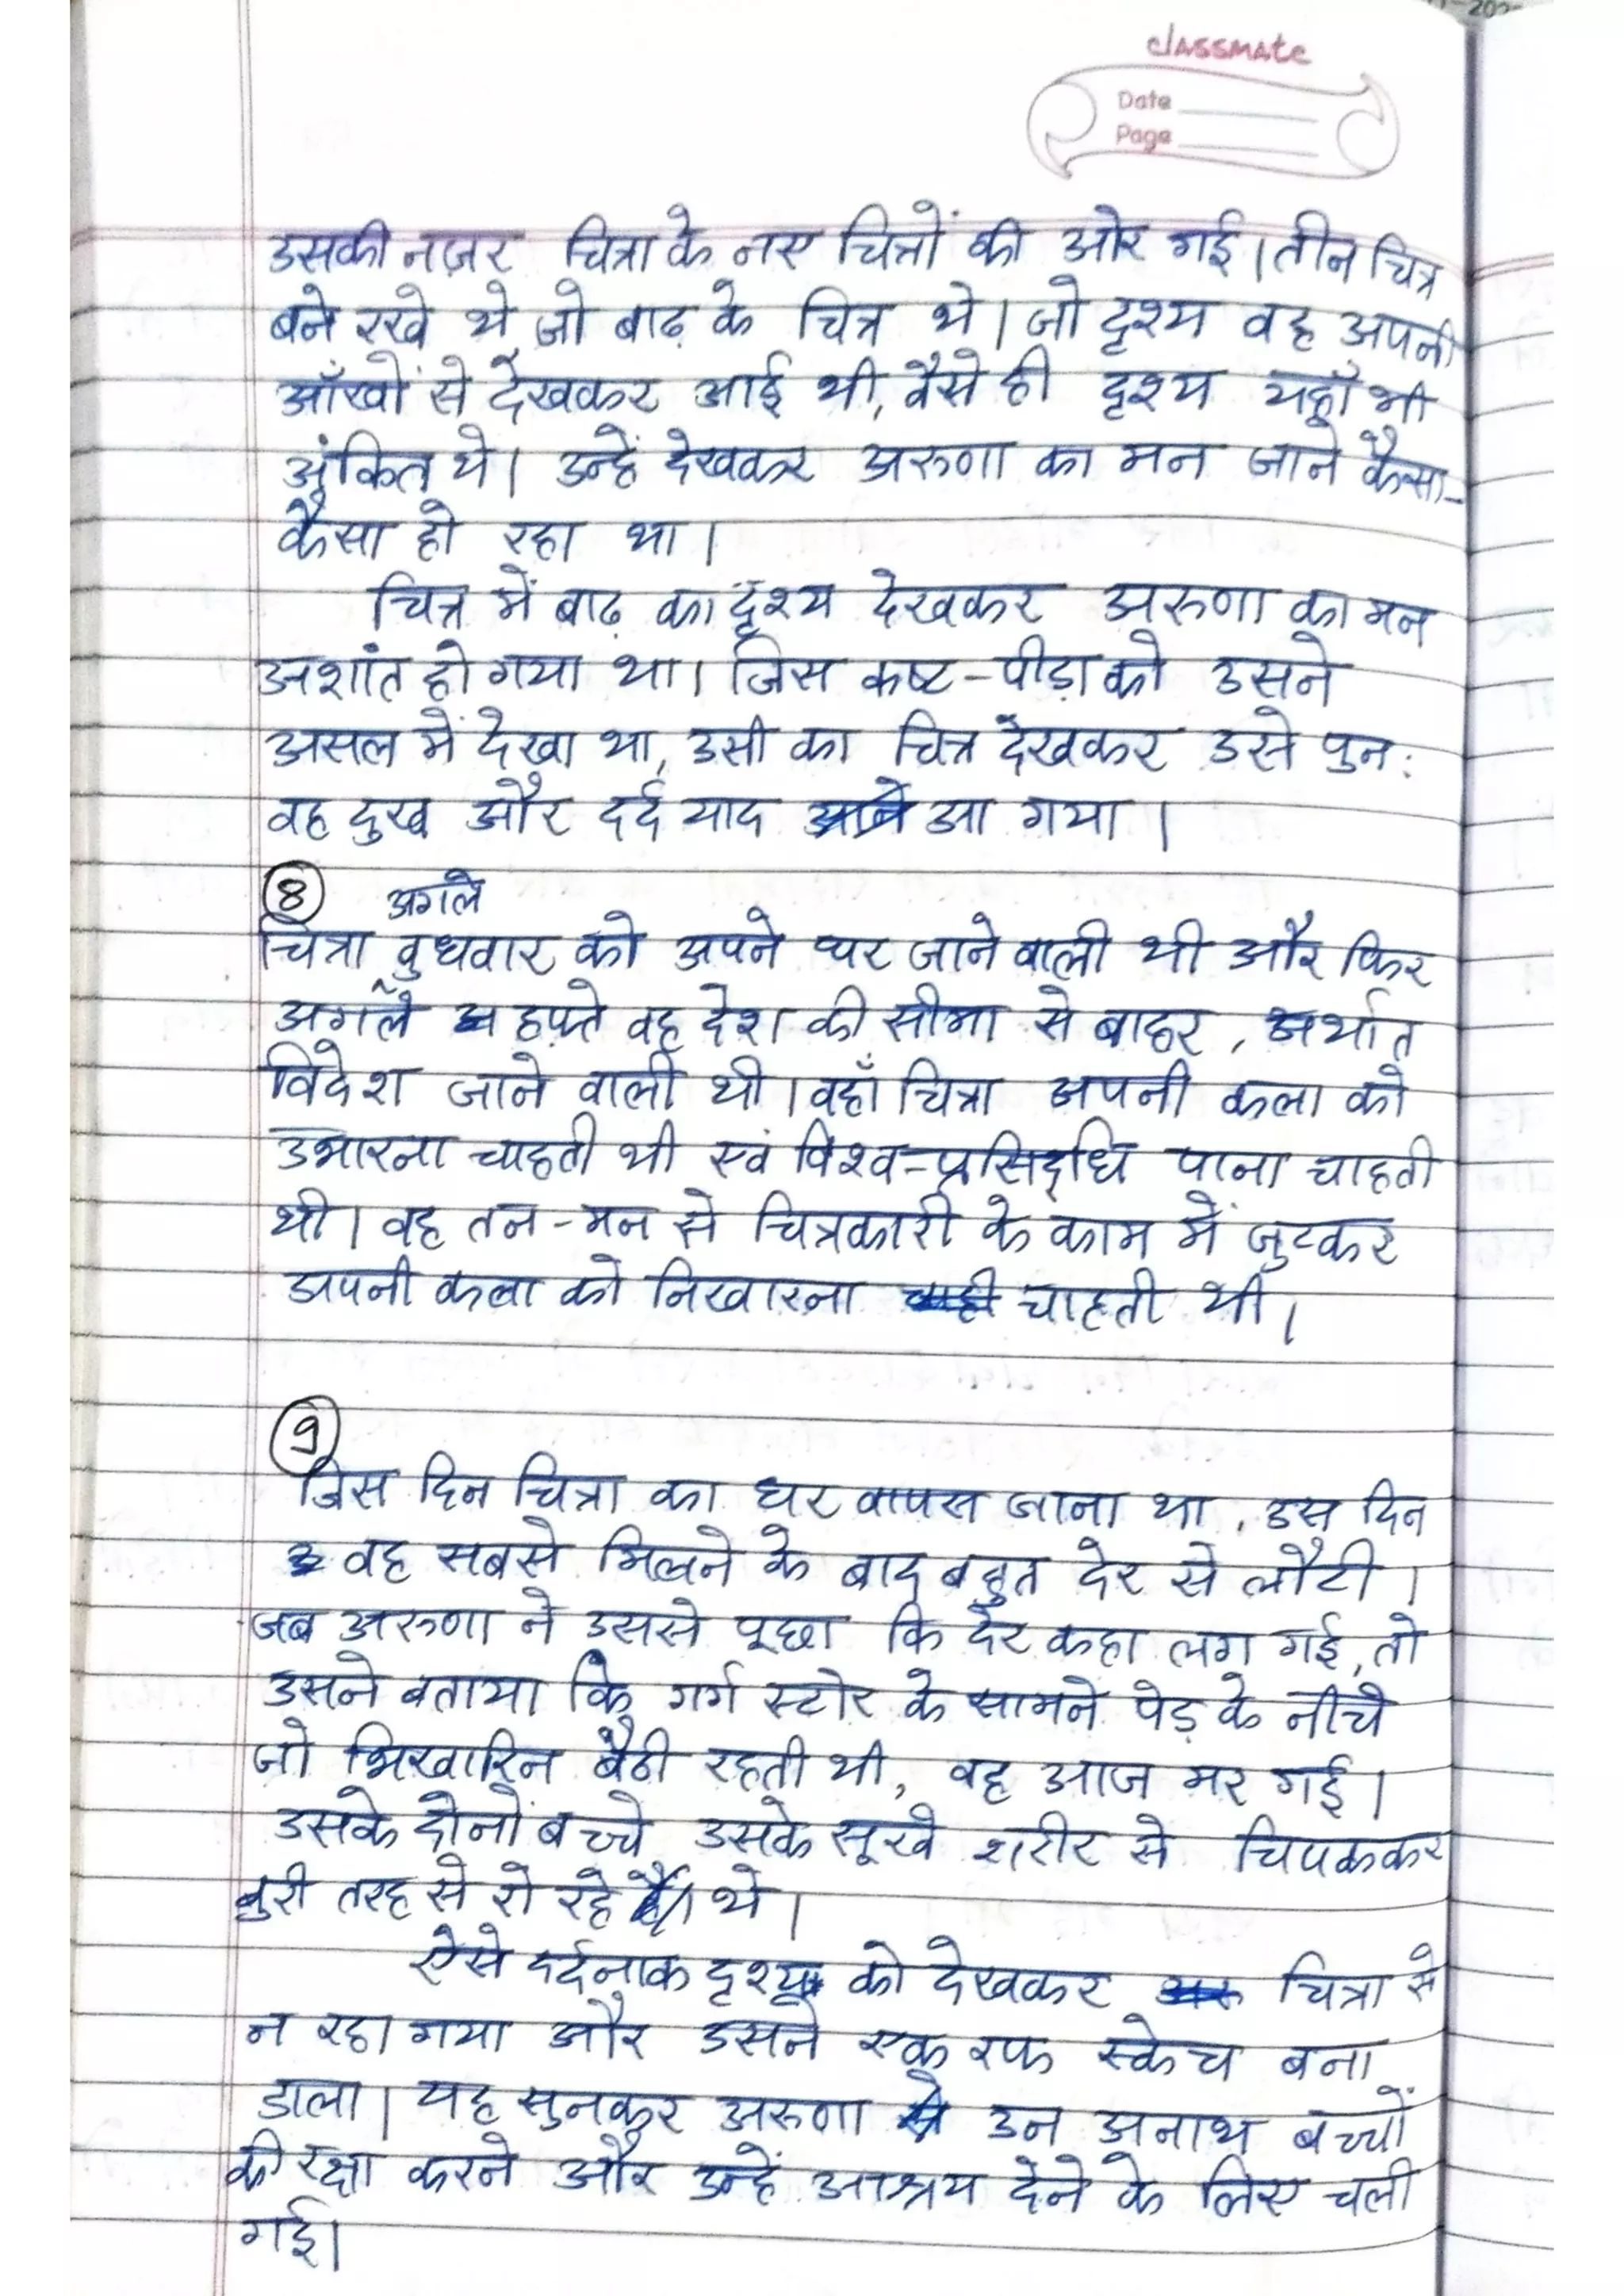 202
classmate
Date
Page
उसकी नज़र चित्रा के नए चित्रों की ओर गई। तीन चित्र
बने रखे थे, जो बाढ़ के चित्र थे। जो दृश्य वह अपनी
आँखों से देखकर आई थी, वैसे ही दृश्य यहाँ भी
अंकित थे। उन्हें देखकर अरुणा का मन जाने कैसा-
कैसा हो रहा था।
चित्र में बाढ़ का दृश्य देखकर अरुणा का मन
अशांत हो गया था। जिस कष्ट-पीड़ा को उसने
असल में देखा था, उसी का चित्र देखकर उसे पुन:
वह दुख और दर्द याद आ गया।
8 अगले
चित्रा बुधवार को अपने घर जाने वाली थी और फिर
अगले हफ्ते वह देश की सीमा से बाहर, अर्थात
विदेश जाने वाली थी। वहाँ चित्रा अपनी कला को
उभारना चाहती थी एवं विश्व-प्रसिद्धि पाना चाहती
थी। वह तन-मन से चित्रकारी के काम में जुटकर
अपनी कला को निखारना चाहती थी।
9
जिस दिन चित्रा का घर वापस जाना था, उस दिन
वह सबसे मिलने के बाद बहुत देर से लौटी।
जब अरुणा ने उससे पूछा कि देर कहा लग गई, तो
उसने बताया कि गर्ग स्टोर के सामने पेड़ के नीचे
जो भिखारिन बैठी रहती थी, वह आज मर गई।
उसके दोनों बच्चे उसके सूखे शरीर से चिपककर
बुरी तरह से रो रहे थे।
ऐसे दर्दनाक दृश्य को देखकर चित्रा से
न रहा गया और उसने एक रफ स्केच बना
डाला। यह सुनकर अरुणा उन अनाथ बच्चों
की रक्षा करने और उन्हें आश्रय देने के लिए चली
गई।